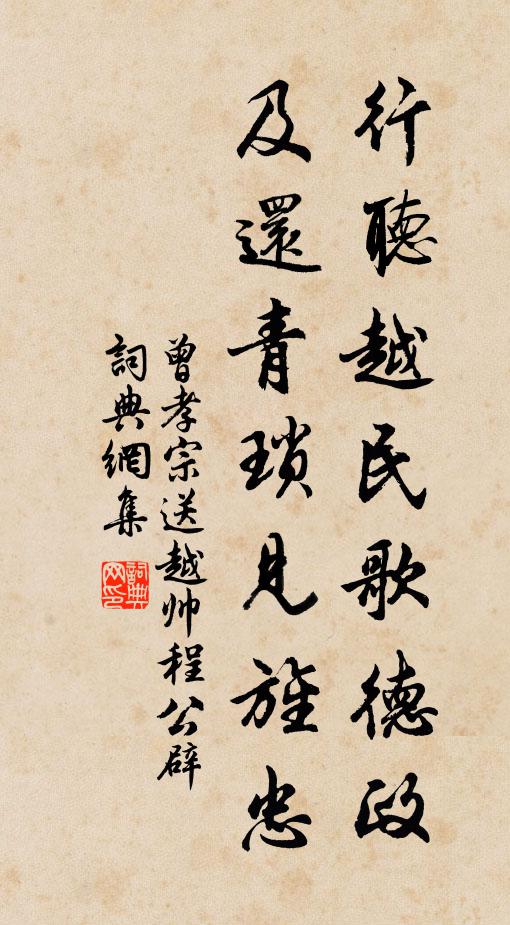 行聽越民歌德政
及還青瑣見旌忠
曾孝宗送越帅程公辟
詞典網集
詞典网印